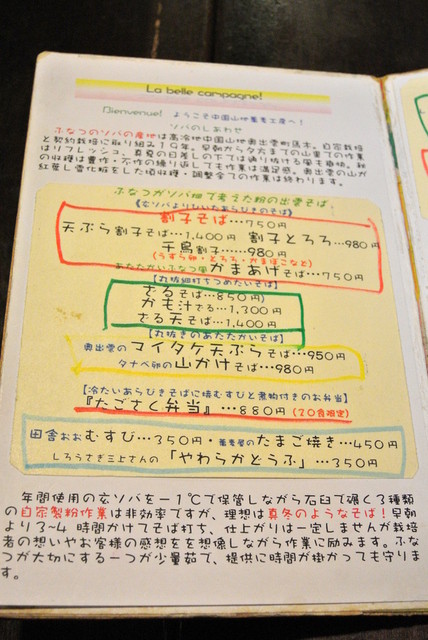 La belle campagne!
Bienvenue! ようこそ中国山地蕎麦工房へ!
ソバのしあわせ
ふなつのソバの産地は高冷地中国山地奥出雲町馬木。自家栽培
と契約栽培に取り組み19年。早朝から夕方までの山里での作業
はリフレッシュ、真夏の日差しの下では通り抜ける風も真切。秋
の収穫は豊作・不作の繰り返しでも作業は満足感。奥出雲の山が
紅葉し雪化粧をした頃収穫・調整全ての作業は終わります。
ふなつがソバ畑で考えた粉の出雲そば
《玄ソバよりていねいあらびきのそば》
割子そば…750円
天ぷら割子そば…1,400円 割子とろろ…980円
千鳥割子……980円
(うずら卵・とろろ・かまぼこなど)
あたたかいふなつ風かまあげそば…750円
【丸抜細打ちつめたいそば】
ざるそば…850円)
かも汁ざる…1,300円
ざる天そば…1,400円
【丸抜きのあたたかいそば】
奥出雲のマイタケ天ぷらそば…950円
タナベ卵の山かけそば…980円
【冷たいあらびきそばに焼むすびと煮物付きのお弁当】
『たごさく弁当』…880円(20食限定)
田舎おおむすび…350円・蕎麦屋のたまご焼き…450円
しろうさぎ三上さんの「やわらかとうふ」…350円
年間使用の玄ソバを-1℃で保管しながら石臼で碾く3種類
の自家製粉作業は非効率ですが、理想は真冬のようなそば!早朝
より3~4時間かけてそば打ち、仕上がりは一定しませんが栽培
者の想いやお客様の感想をを想像しながら作業に励みます。ふな
つが大切にする一つが少量茹で、提供に時間が掛かっても守りま
す。